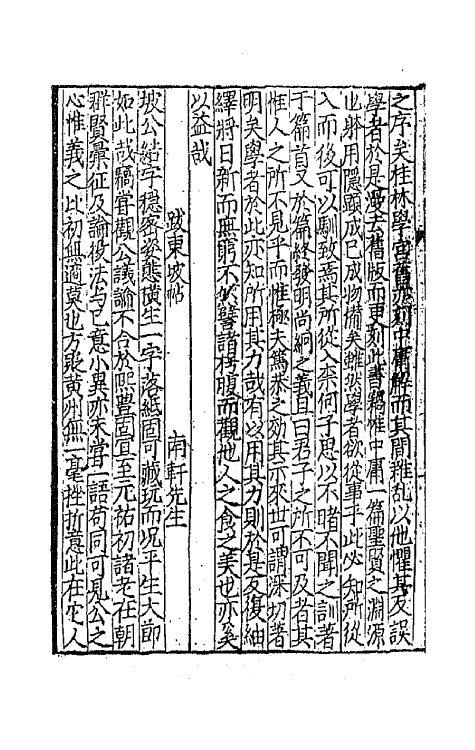 之序矣桂林學宮舊亦刻中庸解而其間雜乱以他懼其反誤
學者於是漫去舊版而更刻此書竊惟中庸一篇聖賢之淵源
也體用隱顯成己成物備矣雖然學者欲從事乎此必知所從
入而後可以馴致焉其所從入柰何子思以不睹不聞之訓著
于篇首又於篇終發明尚絅之義且曰君子之所不可及者其
惟人之所不見乎而惟極夫篤恭之効其示來世可謂深切著
明矣學者於此亦知所用其力哉有以用其力則於是反復紬
繹將日新而無窮不然譬諸枵腹而觀他人之食之美也亦奚
以益哉
跋東坡帖 南軒先生
坡公結字穩密姿態橫生一字落紙固可藏玩而况平生大節
如此哉竊嘗觀公議論不合於熙豊固宜至元祐初諸老在朝
群賢彙征及論役法与己意小異亦未嘗一語苟同可見公之
心惟義之比初無適莫也方貶黄州無一毫挫折意此在它人